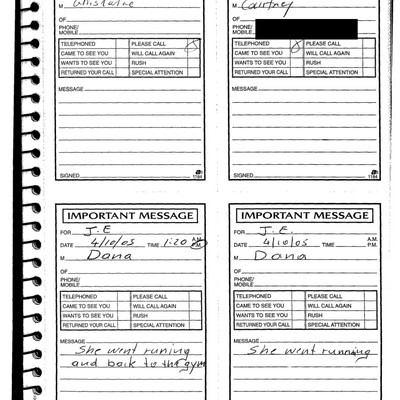 M Courtney
OF
PHONE/
MOBILE
TELEPHONED PLEASE CALL X
CAME TO SEE YOU WILL CALL AGAIN
WANTS TO SEE YOU RUSH
RETURNED YOUR CALL SPECIAL ATTENTION
MESSAGE
SIGNED 1184
M
OF
PHONE/
MOBILE
TELEPHONED X PLEASE CALL
CAME TO SEE YOU WILL CALL AGAIN
WANTS TO SEE YOU RUSH
RETURNED YOUR CALL SPECIAL ATTENTION
MESSAGE
SIGNED 1184
IMPORTANT MESSAGE
FOR J.E
DATE 4/10/05 TIME 1:20 A.M. P.M.
M Dana
OF
PHONE/
MOBILE
TELEPHONED PLEASE CALL
CAME TO SEE YOU WILL CALL AGAIN
WANTS TO SEE YOU RUSH
RETURNED YOUR CALL SPECIAL ATTENTION
MESSAGE
She went runing
and back to the gym
IMPORTANT MESSAGE
FOR J.E.
DATE 4/10/05 TIME A.M. P.M.
M Dana
OF
PHONE/
MOBILE
TELEPHONED PLEASE CALL
CAME TO SEE YOU WILL CALL AGAIN
WANTS TO SEE YOU RUSH
RETURNED YOUR CALL SPECIAL ATTENTION
MESSAGE
She went running